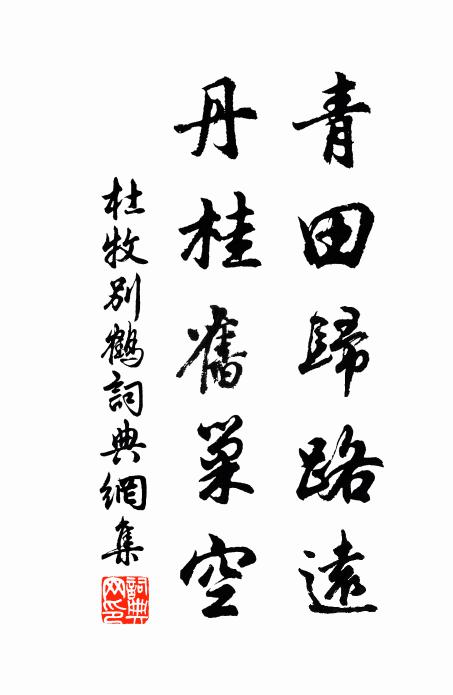 青田歸路遠
丹桂舊巢空
杜牧別鶴詞典網集
詞典網印